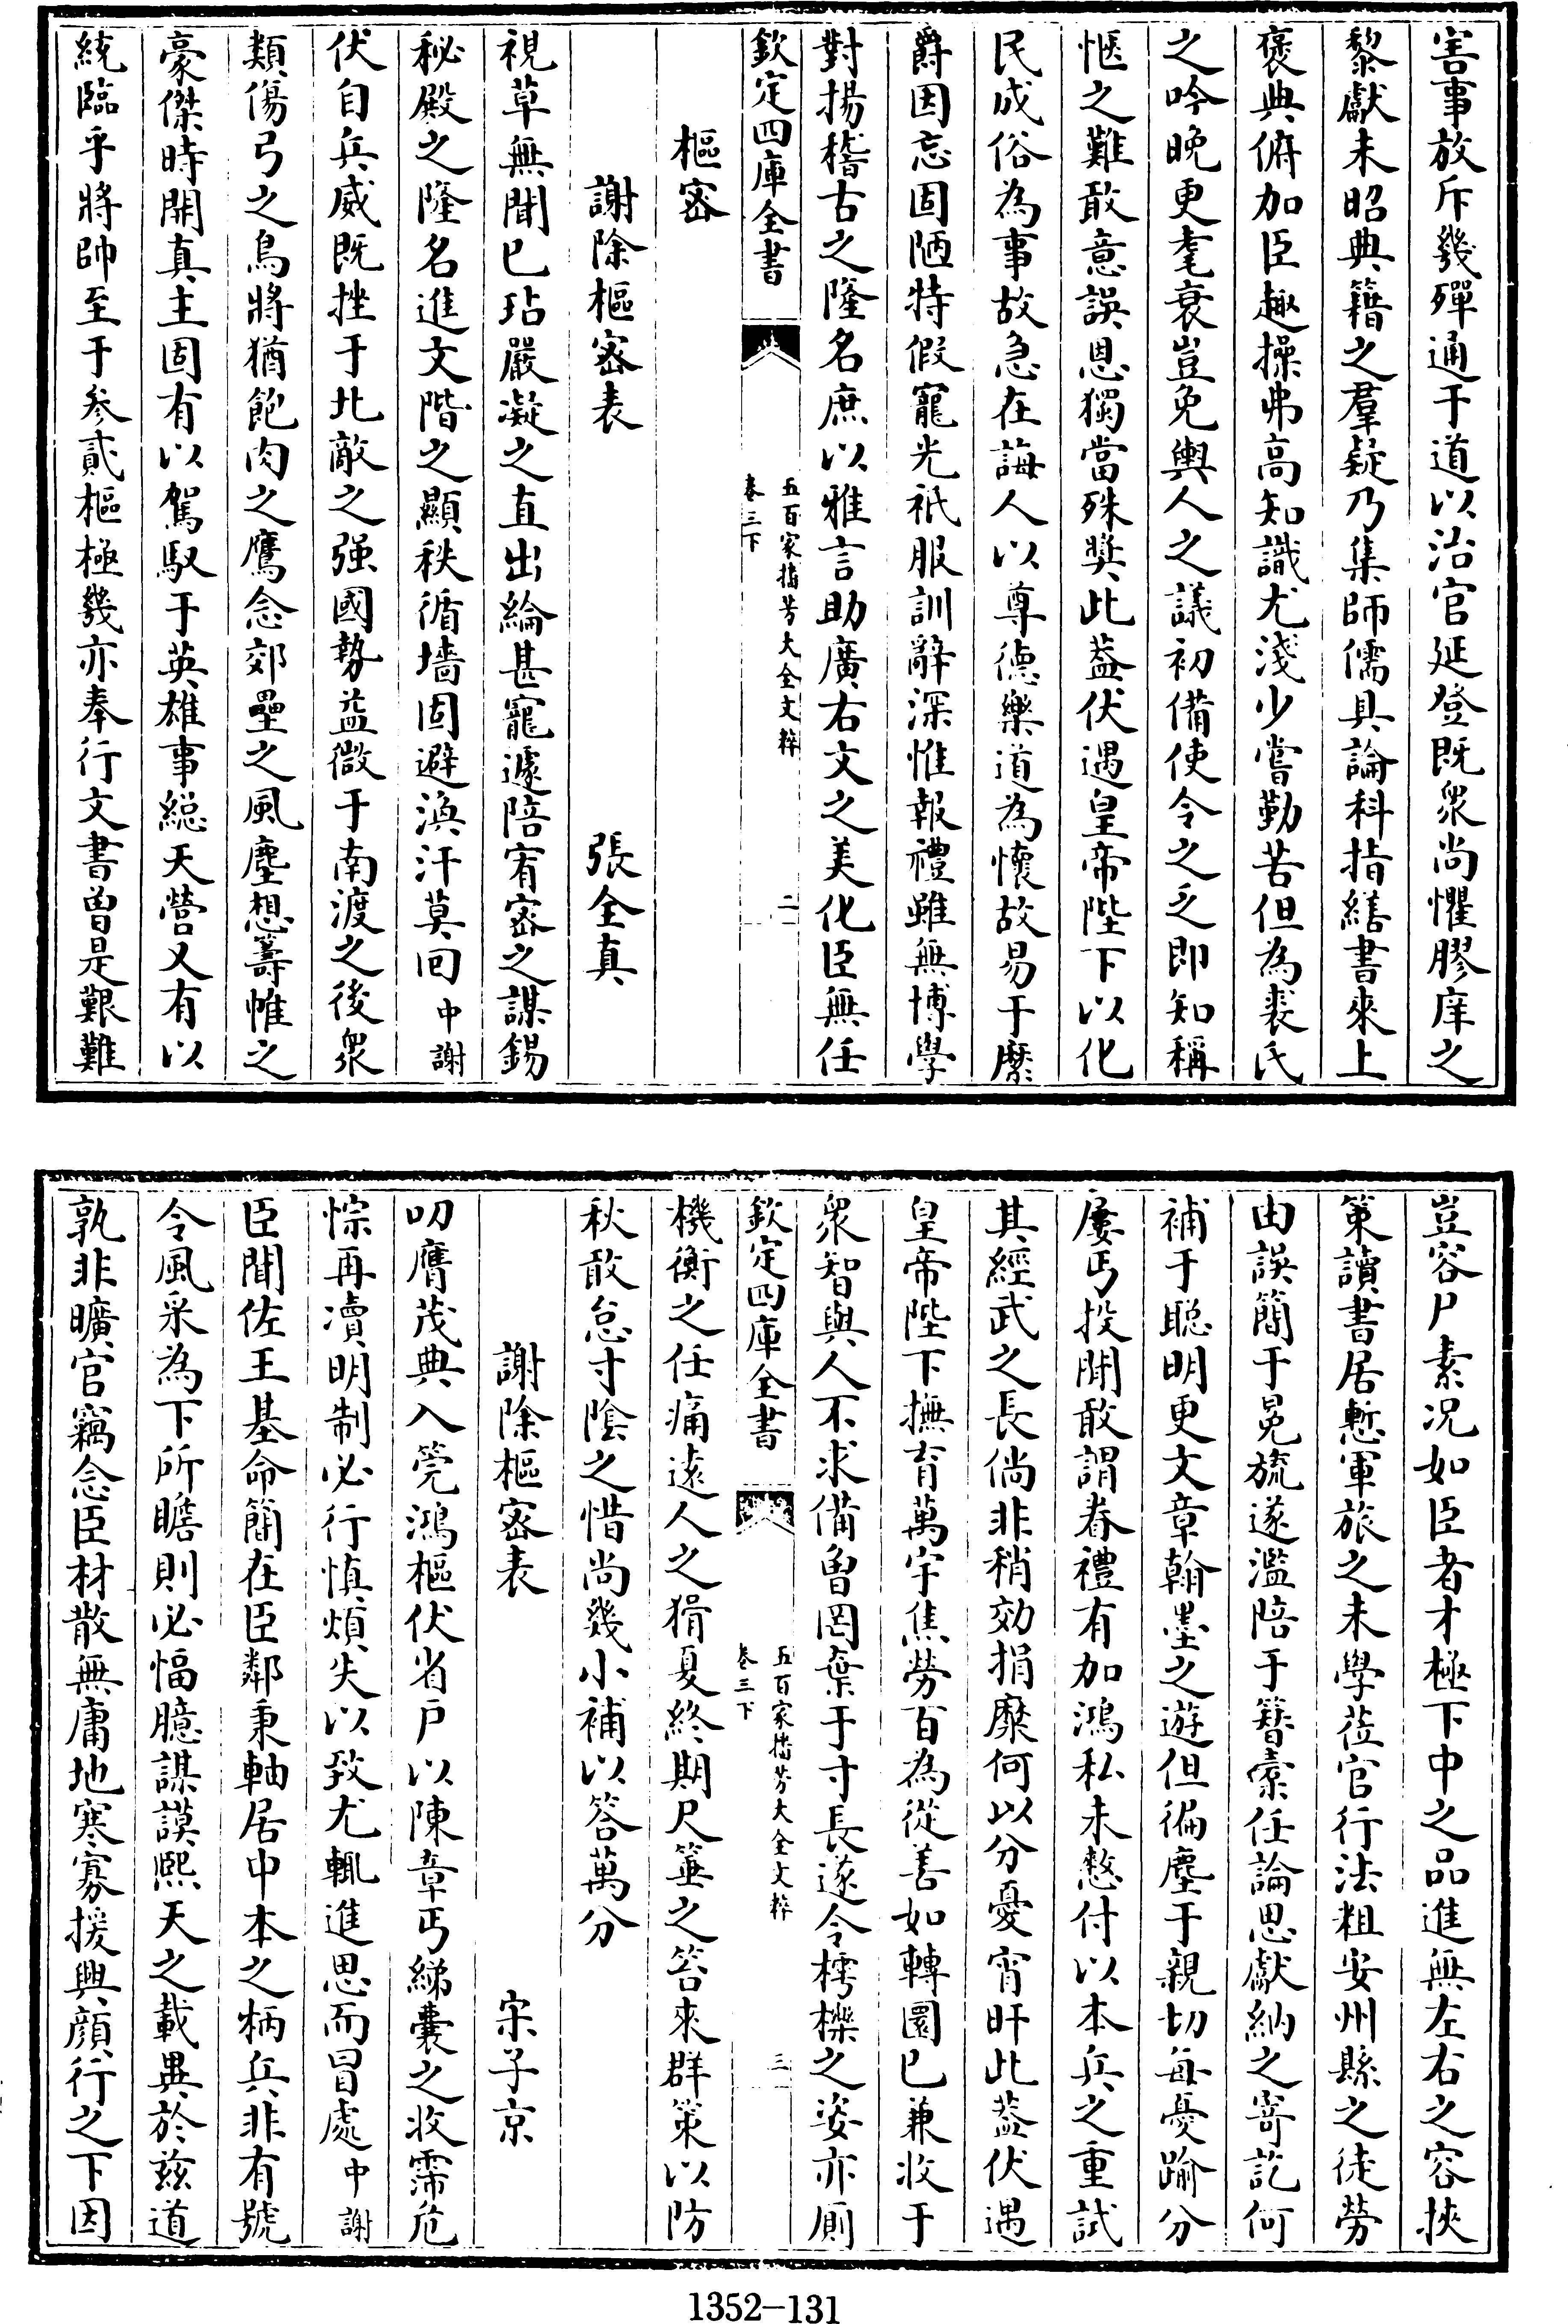 害事放斥幾殫通于道以治官延登既衆尚懼膠庠之
黎獻未昭典籍之羣疑乃集師儒具論科指繕書來上
褒典俯加臣趣操弗高知識尤淺少嘗勤苦但為裘氏
之吟晚更耄衰豈免輿人之議初備使令之乏即知稱
愜之難敢意誤恩獨當殊奬此葢伏遇皇帝陛下以化
民成俗為事故急在誨人以尊德樂道為懷故易于縻
爵因忘固陋特假寵光祇服訓辭深惟報禮雖無博學
對揚稽古之隆名庶以雅言助廣右文之美化臣無任
欽定四庫全書
五百家播芳大全文粹
卷三下
二
樞密
謝除樞密表 張全真
視草無聞已玷嚴凝之直出綸甚寵遽陪宥密之謀錫
秘殿之隆名進文階之顯秩循墻固避渙汗莫回中謝
伏自兵威既挫于北敵之强國勢益微于南渡之後衆
類傷弓之鳥將猶飽肉之鷹念郊壘之風塵想籌帷之
豪傑時開真主固有以駕馭于英雄事緫天營又有以
統臨乎將帥至于參貳樞極幾亦奉行文書曾是艱難
豈容尸素况如臣者才極下中之品進無左右之容挾
策讀書居慙軍旅之未學莅官行法粗安州縣之徒勞
由誤簡于冕旒遂濫陪于簪橐任論思獻納之寄訖何
補于聰明更文章翰墨之遊但徧塵于親切每憂踰分
屢丐投閒敢謂眷禮有加鴻私未憗付以本兵之重試
其經武之長倘非稍効捐糜何以分憂宵旰此葢伏遇
皇帝陛下撫育萬宇焦勞百為從善如轉圜已兼收于
衆智與人不求備曾罔棄于寸長遂令樗櫟之姿亦厠
欽定四庫全書
五百家播芳大全文粹
卷三下
三
機衡之任痛遠人之猾夏終期尺箠之笞來群策以防
秋敢怠寸陰之惜尚幾小補以答萬分
謝除樞密表 宋子京
叨膺茂典入筦鴻樞伏省戶以陳章丐綈囊之收霈危
悰再凟明制必行慎煩失以致尤輒進思而冒處中謝
臣聞佐王基命簡在臣鄰秉軸居中本之柄兵非有號
令風采為下所瞻則必愊臆謀謨熈天之載畀於兹道
孰非曠官竊念臣材散無庸地寒寡援興顔行之下因
1352-131